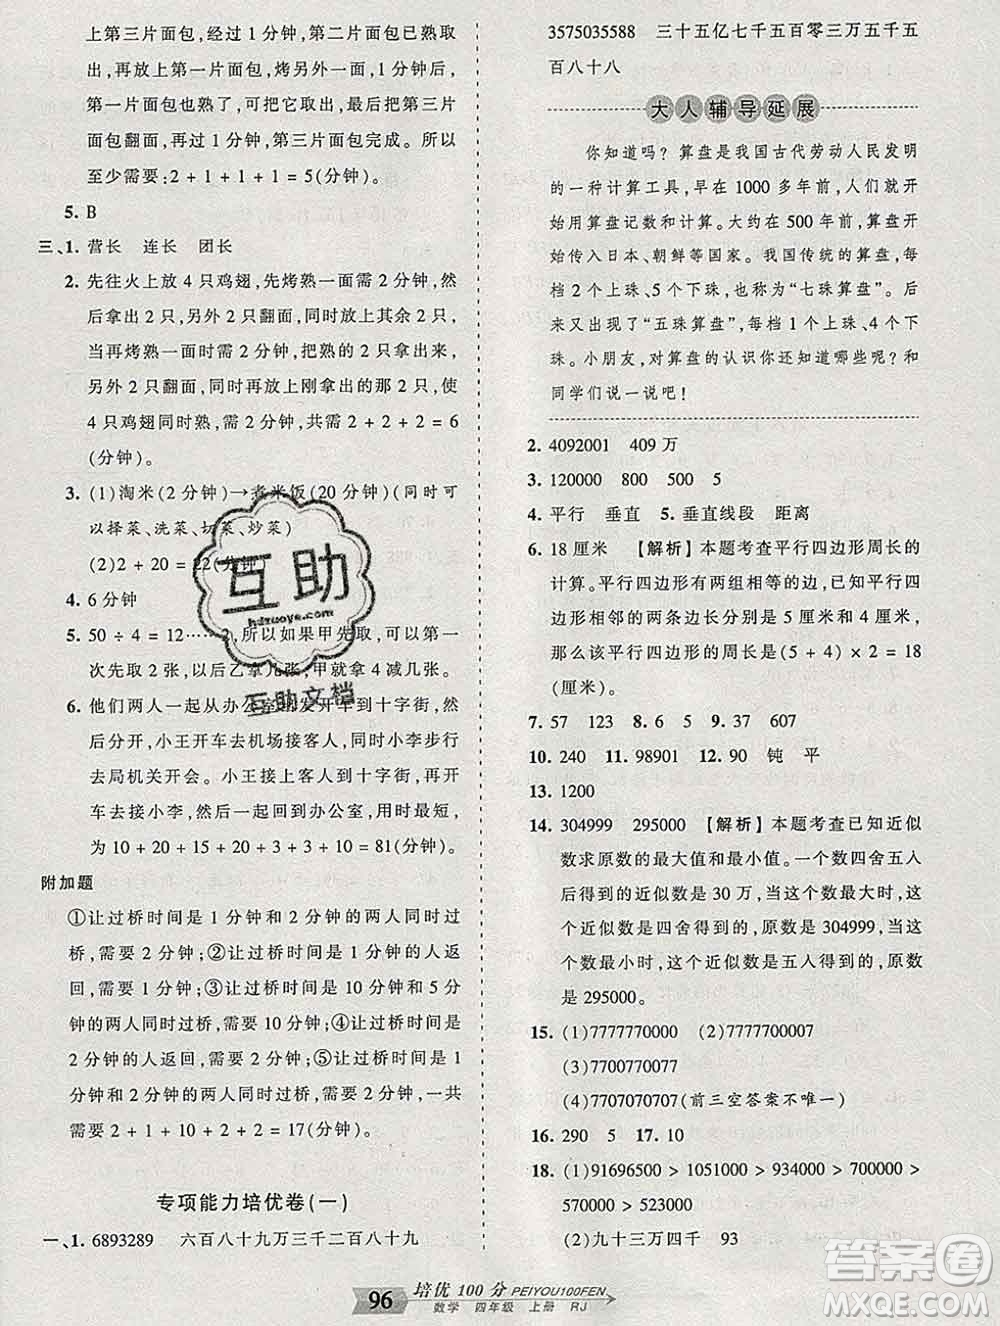 上第三片面包,经过 1 分钟,取出熟面
包,再放上第一片面包,烤另外一面,1
分钟后,第一片面包也熟了,取出,把第三
片面包翻面,再过 1 分钟,第三片面包完成。所以
至少需要:2 + 1 + 1 + 1 = 5(分钟)。
5. B
三、1. 营长 连长 团长
2. 先往火上放 4 只鸡翅,先烤熟一面需 2 分钟,然
后拿出 2 只,另外 2 只翻面,同时放上其余 2 只,
当再烤熟一面时需 2 分钟,熟的 2 只拿出来,
另外 2 只翻面,同时再放上刚拿出的那 2 只,
4 只鸡翅同时熟,需 2 分钟,共需 2 + 2 + 2 = 6
(分钟)。
3. (1)淘米(2 分钟)→煮米饭(20 分钟)(同时可
以择菜、洗菜、切菜、炒菜)
(2)2 + 20 = 22(分钟)
4. 6 分钟
5. 50 ÷ 4 = 12……2,所以如果甲先取,可以第一
次先取 2 张,以后乙拿几张,甲就拿 4 减几张。
6. 他们两人一起从办公室出发开车到十字街,然
后分开,小王开车去机场接客人,同时小李步行
去局机关开会。小王接上客人到十字街,再
接上小李,然后一起回到办公室。最少用时
为 10 + 20 + 15 + 15 + 10 + 1 + 10 = 81(分钟)。
附加题
①让过桥时间是 1 分钟和 2 分钟的两人同时过
桥,需要 2 分钟;②让过桥时间是 1 分钟的人返
回,需要 1 分钟;③让过桥时间是 10 分钟和 5 分
钟的两人同时过桥,需要 10 分钟;④让过桥时间是
2 分钟的人返回,需要 2 分钟;⑤让过桥时间是 1
分钟和 2 分钟的两人同时过桥,需要 2 分钟,一共
需要 2 + 1 + 10 + 2 + 2 = 17(分钟)。
专项能力培优卷(一)
一、1. 6893289 六百八十九万三千二百八十九
3575035588 三十五亿七千五百零三万五千五
百八十八
大人辅导延展
你知道吗?算盘是我国古代劳动人民发明
的一种计算工具,早在 1000 多年前,人们就开
始用算盘记数和计算。大约在 500 年前,算盘开
始传入日本、朝鲜等国家。我国传统的算盘,每档
有 2 个上珠、5 个下珠,也称为“七珠算盘”。后
来,出现了“五珠算盘”,每档 1 个上珠、4 个下
珠。小朋友,对算盘的认识你还知道哪些呢?和
同学们说一说吧!
2. 4092001 409 万
3. 120000 800 500 5
4. 平行 垂直 5. 垂直线段 距离
6. 18 厘米 【解析】本题考查平行四边形周长的
计算。平行四边形有两组相等的边,已知平行四
边形相邻的两条边长分别是 5 厘米和 4 厘米,
那么该平行四边形的周长是(5 + 4) × 2 = 18
(厘米)。
7. 57 123 8. 6 5 9. 37 607
10. 240 11. 98901 12. 90 钝 平
13. 1200
14. 304999 295000 【解析】本题考查已知近似
数求原数的最大值和最小值。一个数四舍五入
后得到的近似数是 30 万,当这个数最大时,这
个近似数是四舍得到的,原数是 304999,当这个
数最小时,这个近似数是五入得到的,原数
是 295000。
15. (1)7777770000 (2)7777700007
(3)7777007700
(4)7707070707(前三空答案不唯一)
16. 290 5 17. 10
18. (1)91696500 > 1051000 > 934000 > 700000
> 567000 > 523000
(2)九十三万四千 93
互助
hdzuoye.com
互助文档
96 培优 100 分 PEIYOU100FEN
数学 四年级 上册 RJ
答案圈
MXQE.COM